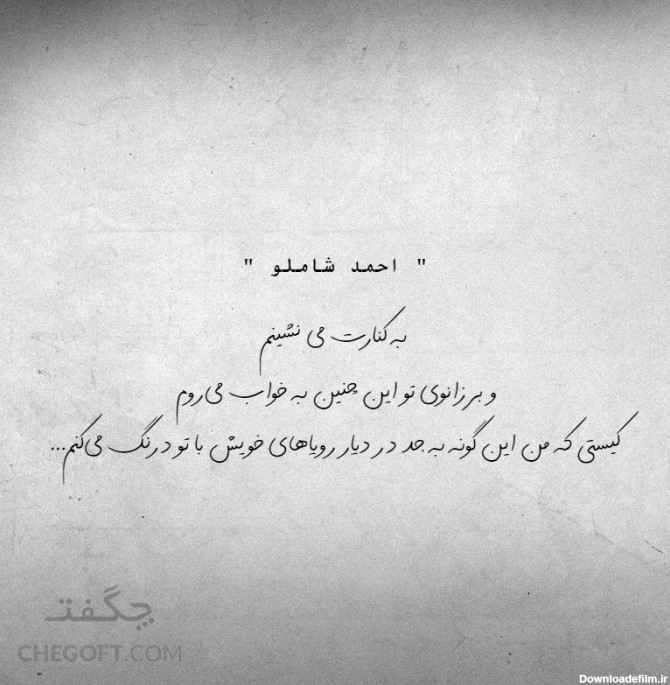 " احمد شاملو "
به کنارت می نشینم
و بر زانوی تو این چنین به خواب می‌روم
کیستی که من این گونه به جد در دیار رویاهای خویش با تو درنگ می‌کنم...
چگفت
CHEGOFT.COM
Downloadefilm.ir